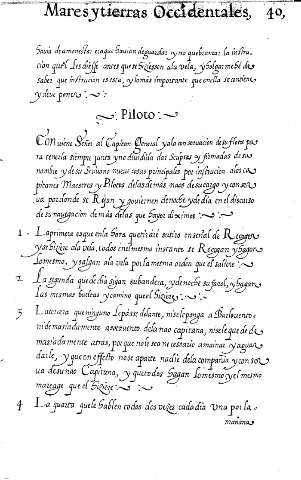 Mares y tierras Occidentales, 40,
havia de amonestar en que havian de guardar y no quebrantar la instru-
cion que les diesse antes que se hiziessen a la vela, y holgarme he de
saber que instrucion es essa, y lo mas importante que en ella se contiene
y deve poner.
Piloto.
Conviene Señor al Capitan General y a la conservacion de su flota pa
ra tenerla siempre junta y no dividida dar Scriptas y firmadas de su
nombre y de su Scrivano nueve cosas principales por instrucion a los ca
pitanes Maestres y Pilotos de las demas naos de su cargo y conser
va por donde se Rijan y goviernen de noche y de dia en el discurso
de su navegacion demas de las que haveis dicho
1 - La primera es que en la hora que tirare su tiro en señal de Recoger
y se hiziere a la vela, todos en el mesmo instante se Recogan y hagan
lo mesmo, y salgan a la vela por la mesma orden que el saliere
2 La segunda que de dia sigan su bandera, y de noche su farol, y hagan
las mesmas bueltas y camino que el hiziere
3 La tercera que ninguno le passe delante, ni se le ponga a Barlovento
ni demasiadamente a sotavento de la nao capitana, ni se le quede de
masiadamente atras, porque no le sea necessario amainar y aguar
darle, y que en effecto no se aparte nadie de la compañia y conser
va de su nao Capitana, y que todos hagan lo mesmo y el mesmo
mareage que el hiziere
4 La quarta que le hablen todos dos vezes cada dia una por la
mañana